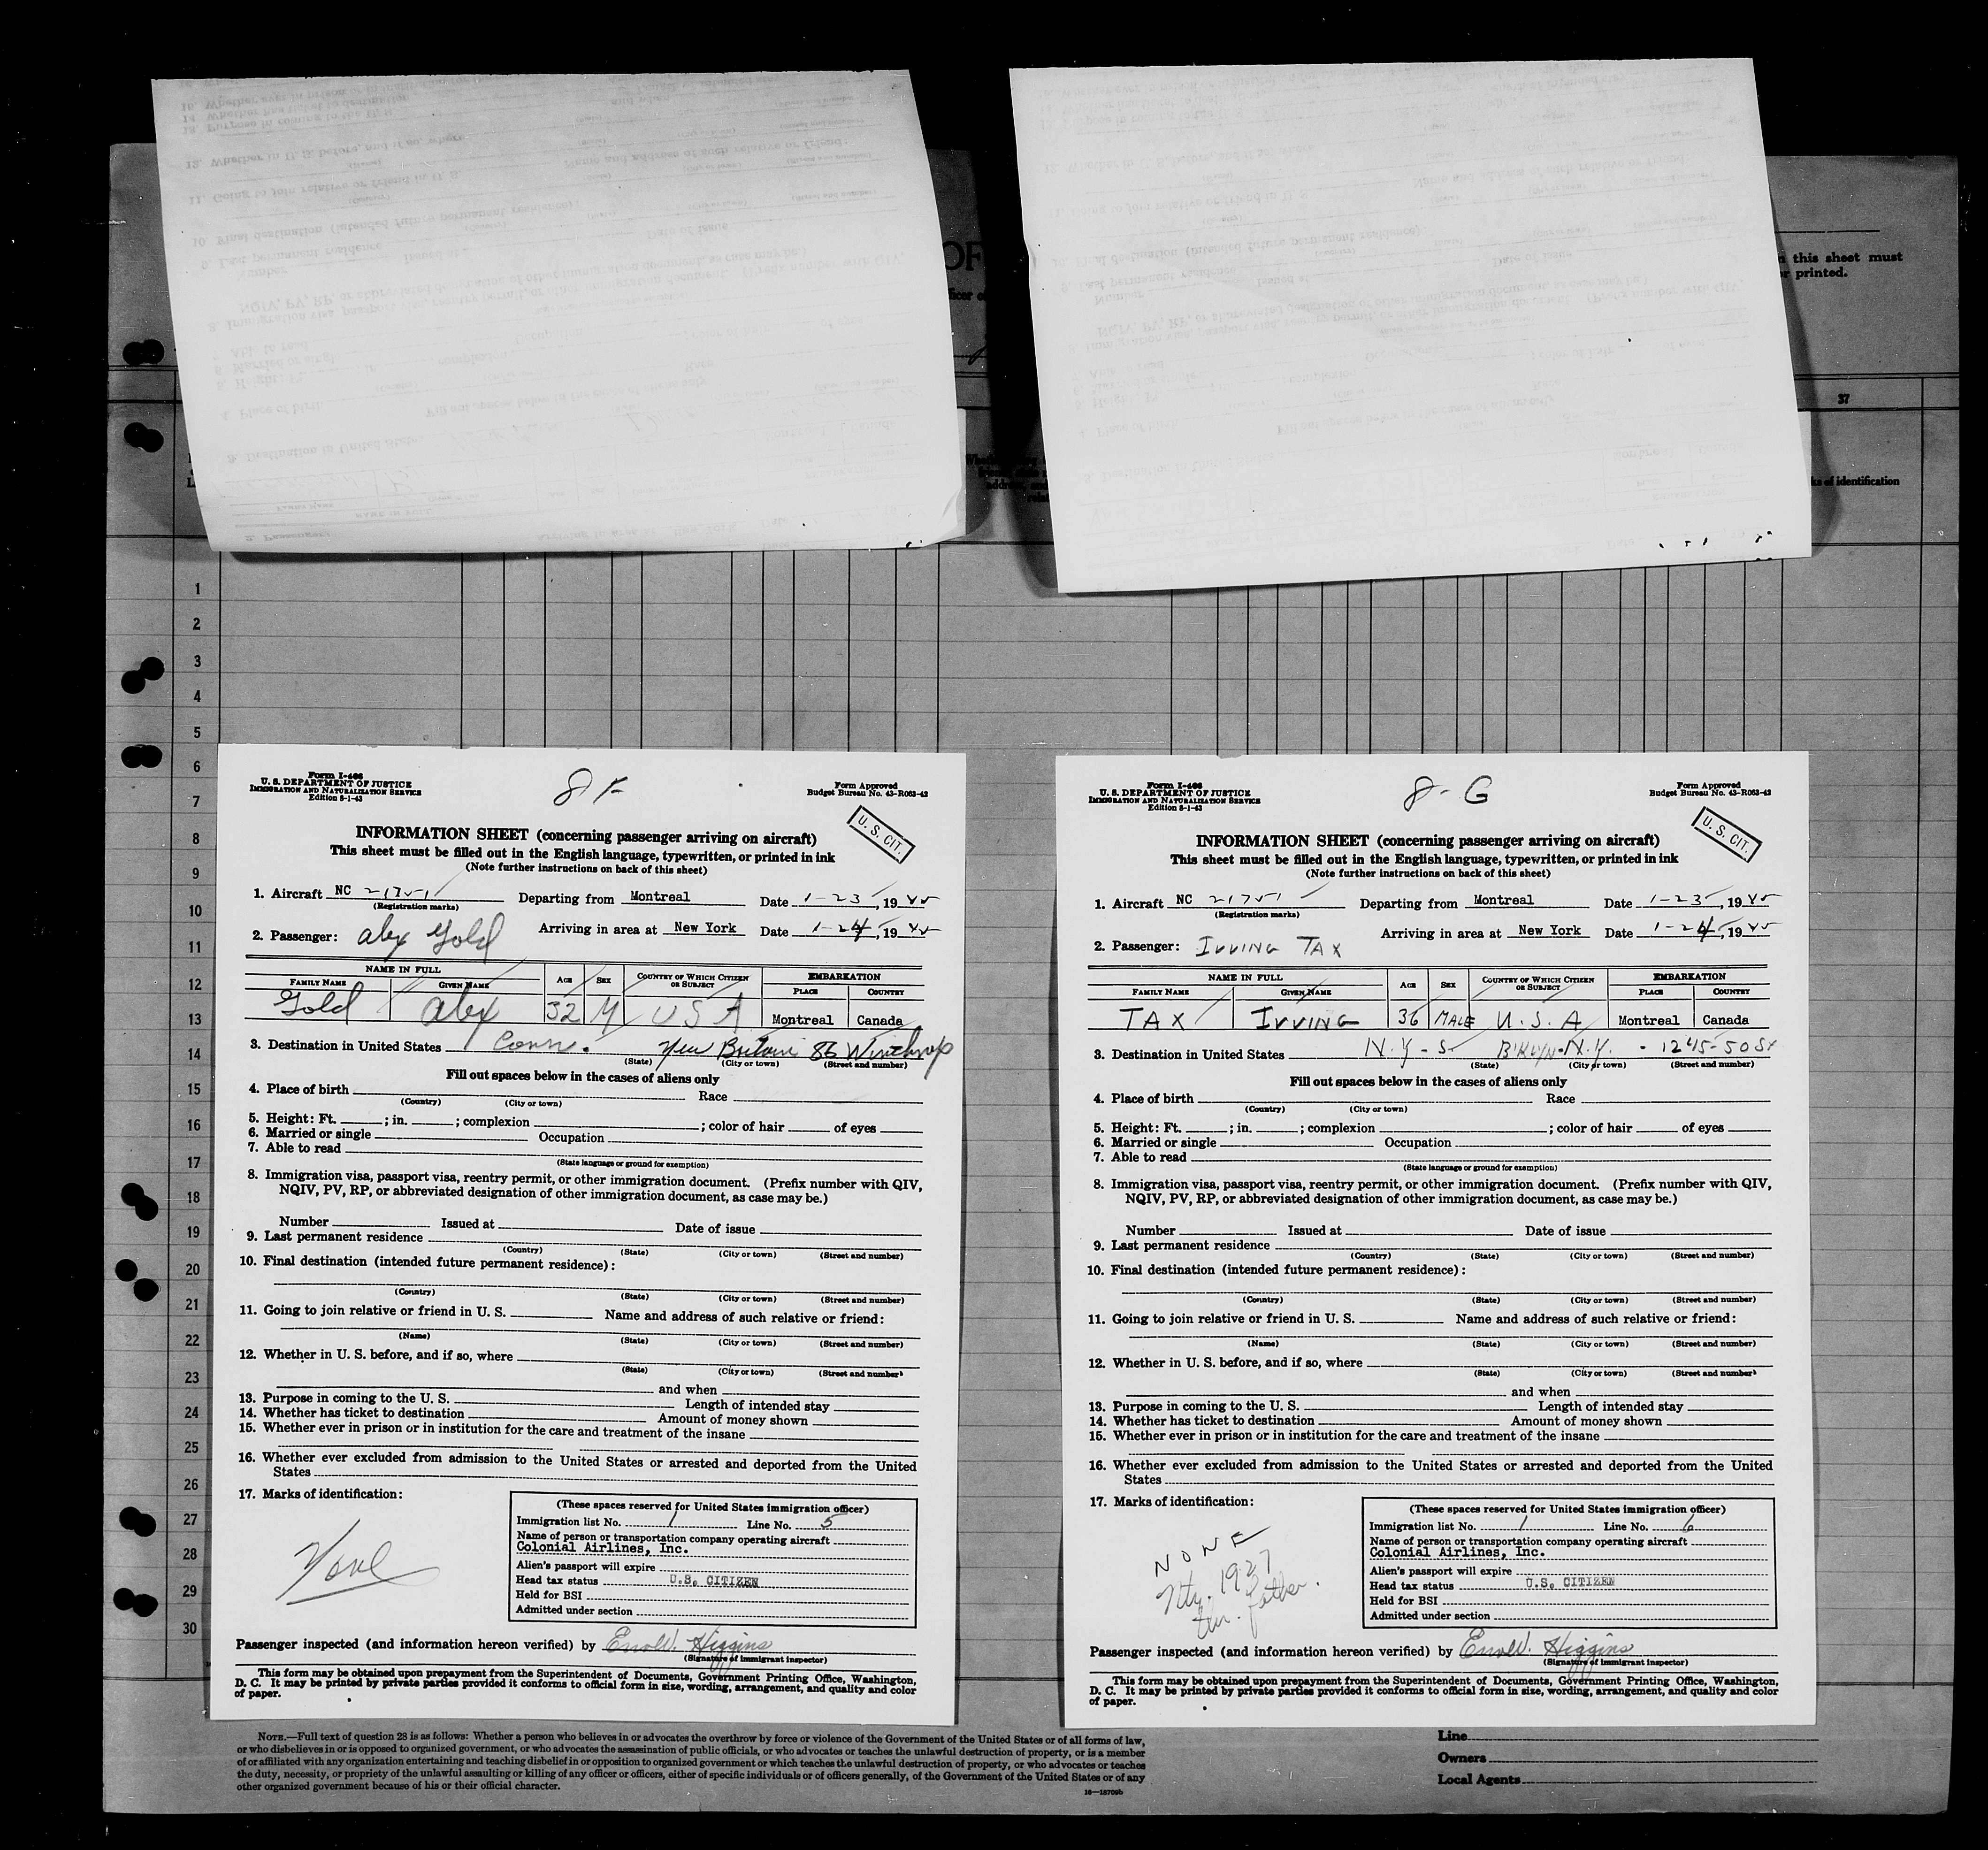 OF
this sheet must
or printed.
37
of identification
1
2
3
4
5
6
7
8
9
10
11
12
13
14
15
16
17
18
19
20
21
22
23
24
25
26
27
28
29
30
Form I-466
U. S. DEPARTMENT OF JUSTICE
IMMIGRATION AND NATURALIZATION SERVICE
Edition 8-1-43
8 F
Form Approved
Budget Bureau No. 43-R063-42
U. S. CIT.
INFORMATION SHEET (concerning passenger arriving on aircraft)
This sheet must be filled out in the English language, typewritten, or printed in ink
(Note further instructions on back of this sheet)
1. Aircraft NC 21751 Departing from Montreal Date 1-23, 1945
(Registration marks)
2. Passenger: Alex Gold Arriving in area at New York Date 1-24, 1945
NAME IN FULL AGE SEX COUNTRY OF WHICH CITIZEN OR SUBJECT EMBARKATION
FAMILY NAME GIVEN NAME PLACE COUNTRY
Gold Alex 32 M U S A Montreal Canada
3. Destination in United States Conn. New Britain 86 Winthrop
(State) (City or town) (Street and number)
Fill out spaces below in the cases of aliens only
4. Place of birth Race
(Country) (City or town)
5. Height: Ft. ; in. ; complexion ; color of hair of eyes
6. Married or single Occupation
7. Able to read
(State language or ground for exemption)
8. Immigration visa, passport visa, reentry permit, or other immigration document. (Prefix number with QIV,
NQIV, PV, RP, or abbreviated designation of other immigration document, as case may be.)
Number Issued at Date of issue
9. Last permanent residence
(Country) (State) (City or town) (Street and number)
10. Final destination (intended future permanent residence):
(Country) (State) (City or town) (Street and number)
11. Going to join relative or friend in U. S. Name and address of such relative or friend:
(Name) (State) (City or town) (Street and number)
12. Whether in U. S. before, and if so, where
(State) (City or town) (Street and number)
and when
13. Purpose in coming to the U. S. Length of intended stay
14. Whether has ticket to destination Amount of money shown
15. Whether ever in prison or in institution for the care and treatment of the insane
16. Whether ever excluded from admission to the United States or arrested and deported from the United
States
17. Marks of identification:
None
(These spaces reserved for United States immigration officer)
Immigration list No. 1 Line No. 5
Name of person or transportation company operating aircraft
Colonial Airlines, Inc.
Alien's passport will expire
Head tax status U.S. CITIZEN
Held for BSI
Admitted under section
Passenger inspected (and information hereon verified) by Errol W. Higgins
(Signature of immigrant inspector)
This form may be obtained upon prepayment from the Superintendent of Documents, Government Printing Office, Washington,
D. C. It may be printed by private parties provided it conforms to official form in size, wording, arrangement, and quality and color
of paper.
Form I-466
U. S. DEPARTMENT OF JUSTICE
IMMIGRATION AND NATURALIZATION SERVICE
Edition 8-1-43
8-G
Form Approved
Budget Bureau No. 43-R063-42
U. S. CIT.
INFORMATION SHEET (concerning passenger arriving on aircraft)
This sheet must be filled out in the English language, typewritten, or printed in ink
(Note further instructions on back of this sheet)
1. Aircraft NC 21751 Departing from Montreal Date 1-23, 1945
(Registration marks)
2. Passenger: IRVING TAX Arriving in area at New York Date 1-24, 1945
NAME IN FULL AGE SEX COUNTRY OF WHICH CITIZEN OR SUBJECT EMBARKATION
FAMILY NAME GIVEN NAME PLACE COUNTRY
TAX IRVING 36 MALE U. S. A Montreal Canada
3. Destination in United States N.Y-S. B'KLYN-N.Y. - 1245-50 St
(State) (City or town) (Street and number)
Fill out spaces below in the cases of aliens only
4. Place of birth Race
(Country) (City or town)
5. Height: Ft. ; in. ; complexion ; color of hair of eyes
6. Married or single Occupation
7. Able to read
(State language or ground for exemption)
8. Immigration visa, passport visa, reentry permit, or other immigration document. (Prefix number with QIV,
NQIV, PV, RP, or abbreviated designation of other immigration document, as case may be.)
Number Issued at Date of issue
9. Last permanent residence
(Country) (State) (City or town) (Street and number)
10. Final destination (intended future permanent residence):
(Country) (State) (City or town) (Street and number)
11. Going to join relative or friend in U. S. Name and address of such relative or friend:
(Name) (State) (City or town) (Street and number)
12. Whether in U. S. before, and if so, where
(State) (City or town) (Street and number)
and when
13. Purpose in coming to the U. S. Length of intended stay
14. Whether has ticket to destination Amount of money shown
15. Whether ever in prison or in institution for the care and treatment of the insane
16. Whether ever excluded from admission to the United States or arrested and deported from the United
States
17. Marks of identification:
NONE
Ntz. 1927
thr. father.
(These spaces reserved for United States immigration officer)
Immigration list No. 1 Line No. 6
Name of person or transportation company operating aircraft
Colonial Airlines, Inc.
Alien's passport will expire
Head tax status U.S. CITIZEN
Held for BSI
Admitted under section
Passenger inspected (and information hereon verified) by Errol W. Higgins
(Signature of immigrant inspector)
This form may be obtained upon prepayment from the Superintendent of Documents, Government Printing Office, Washington,
D. C. It may be printed by private parties provided it conforms to official form in size, wording, arrangement, and quality and color
of paper.
NOTE.—Full text of question 28 is as follows: Whether a person who believes in or advocates the overthrow by force or violence of the Government of the United States or of all forms of law,
or who disbelieves in or is opposed to organized government, or who advocates the assassination of public officials, or who advocates or teaches the unlawful destruction of property, or is a member
of or affiliated with any organization entertaining and teaching disbelief in or opposition to organized government or which teaches the unlawful destruction of property, or who advocates or teaches
the duty, necessity, or propriety of the unlawful assaulting or killing of any officer or officers, either of specific individuals or of officers generally, of the Government of the United States or of any
other organized government because of his or their official character.
16—18709b
Line
Owners
Local Agents